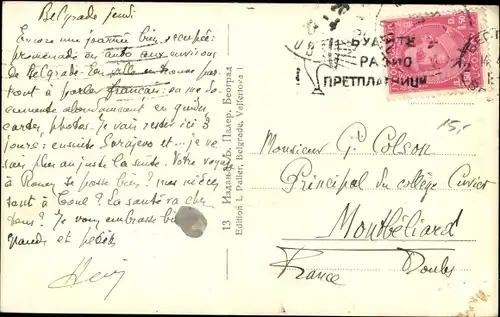 Belgrade jeudi
Encore une journée bien occupée:
promenade en auto aux environs
de Belgrade. En ville on trouve par-
tout à parler français: on me do-
cumente abondamment en guides
cartes, photos. Je vais rester ici 3
jours: ensuite Sarajevo et... je ne
sais plus au juste la suite. Votre voyage
à Rouen se passe bien? mes nièces
sont à Toul? La santé va chez
tous? Je vous embrasse bien
grands et petits
Henri
13 Издање Л. Палер, Београд
Edition L. Pailler, Belgrade, Vasfertova 1
БУДИТЕ
РАДИО
ПРЕТПЛАТНИЦИ
15,-
Monsieur G. Colson
Principal du collège Cuvier
Montbéliard
France Doubs